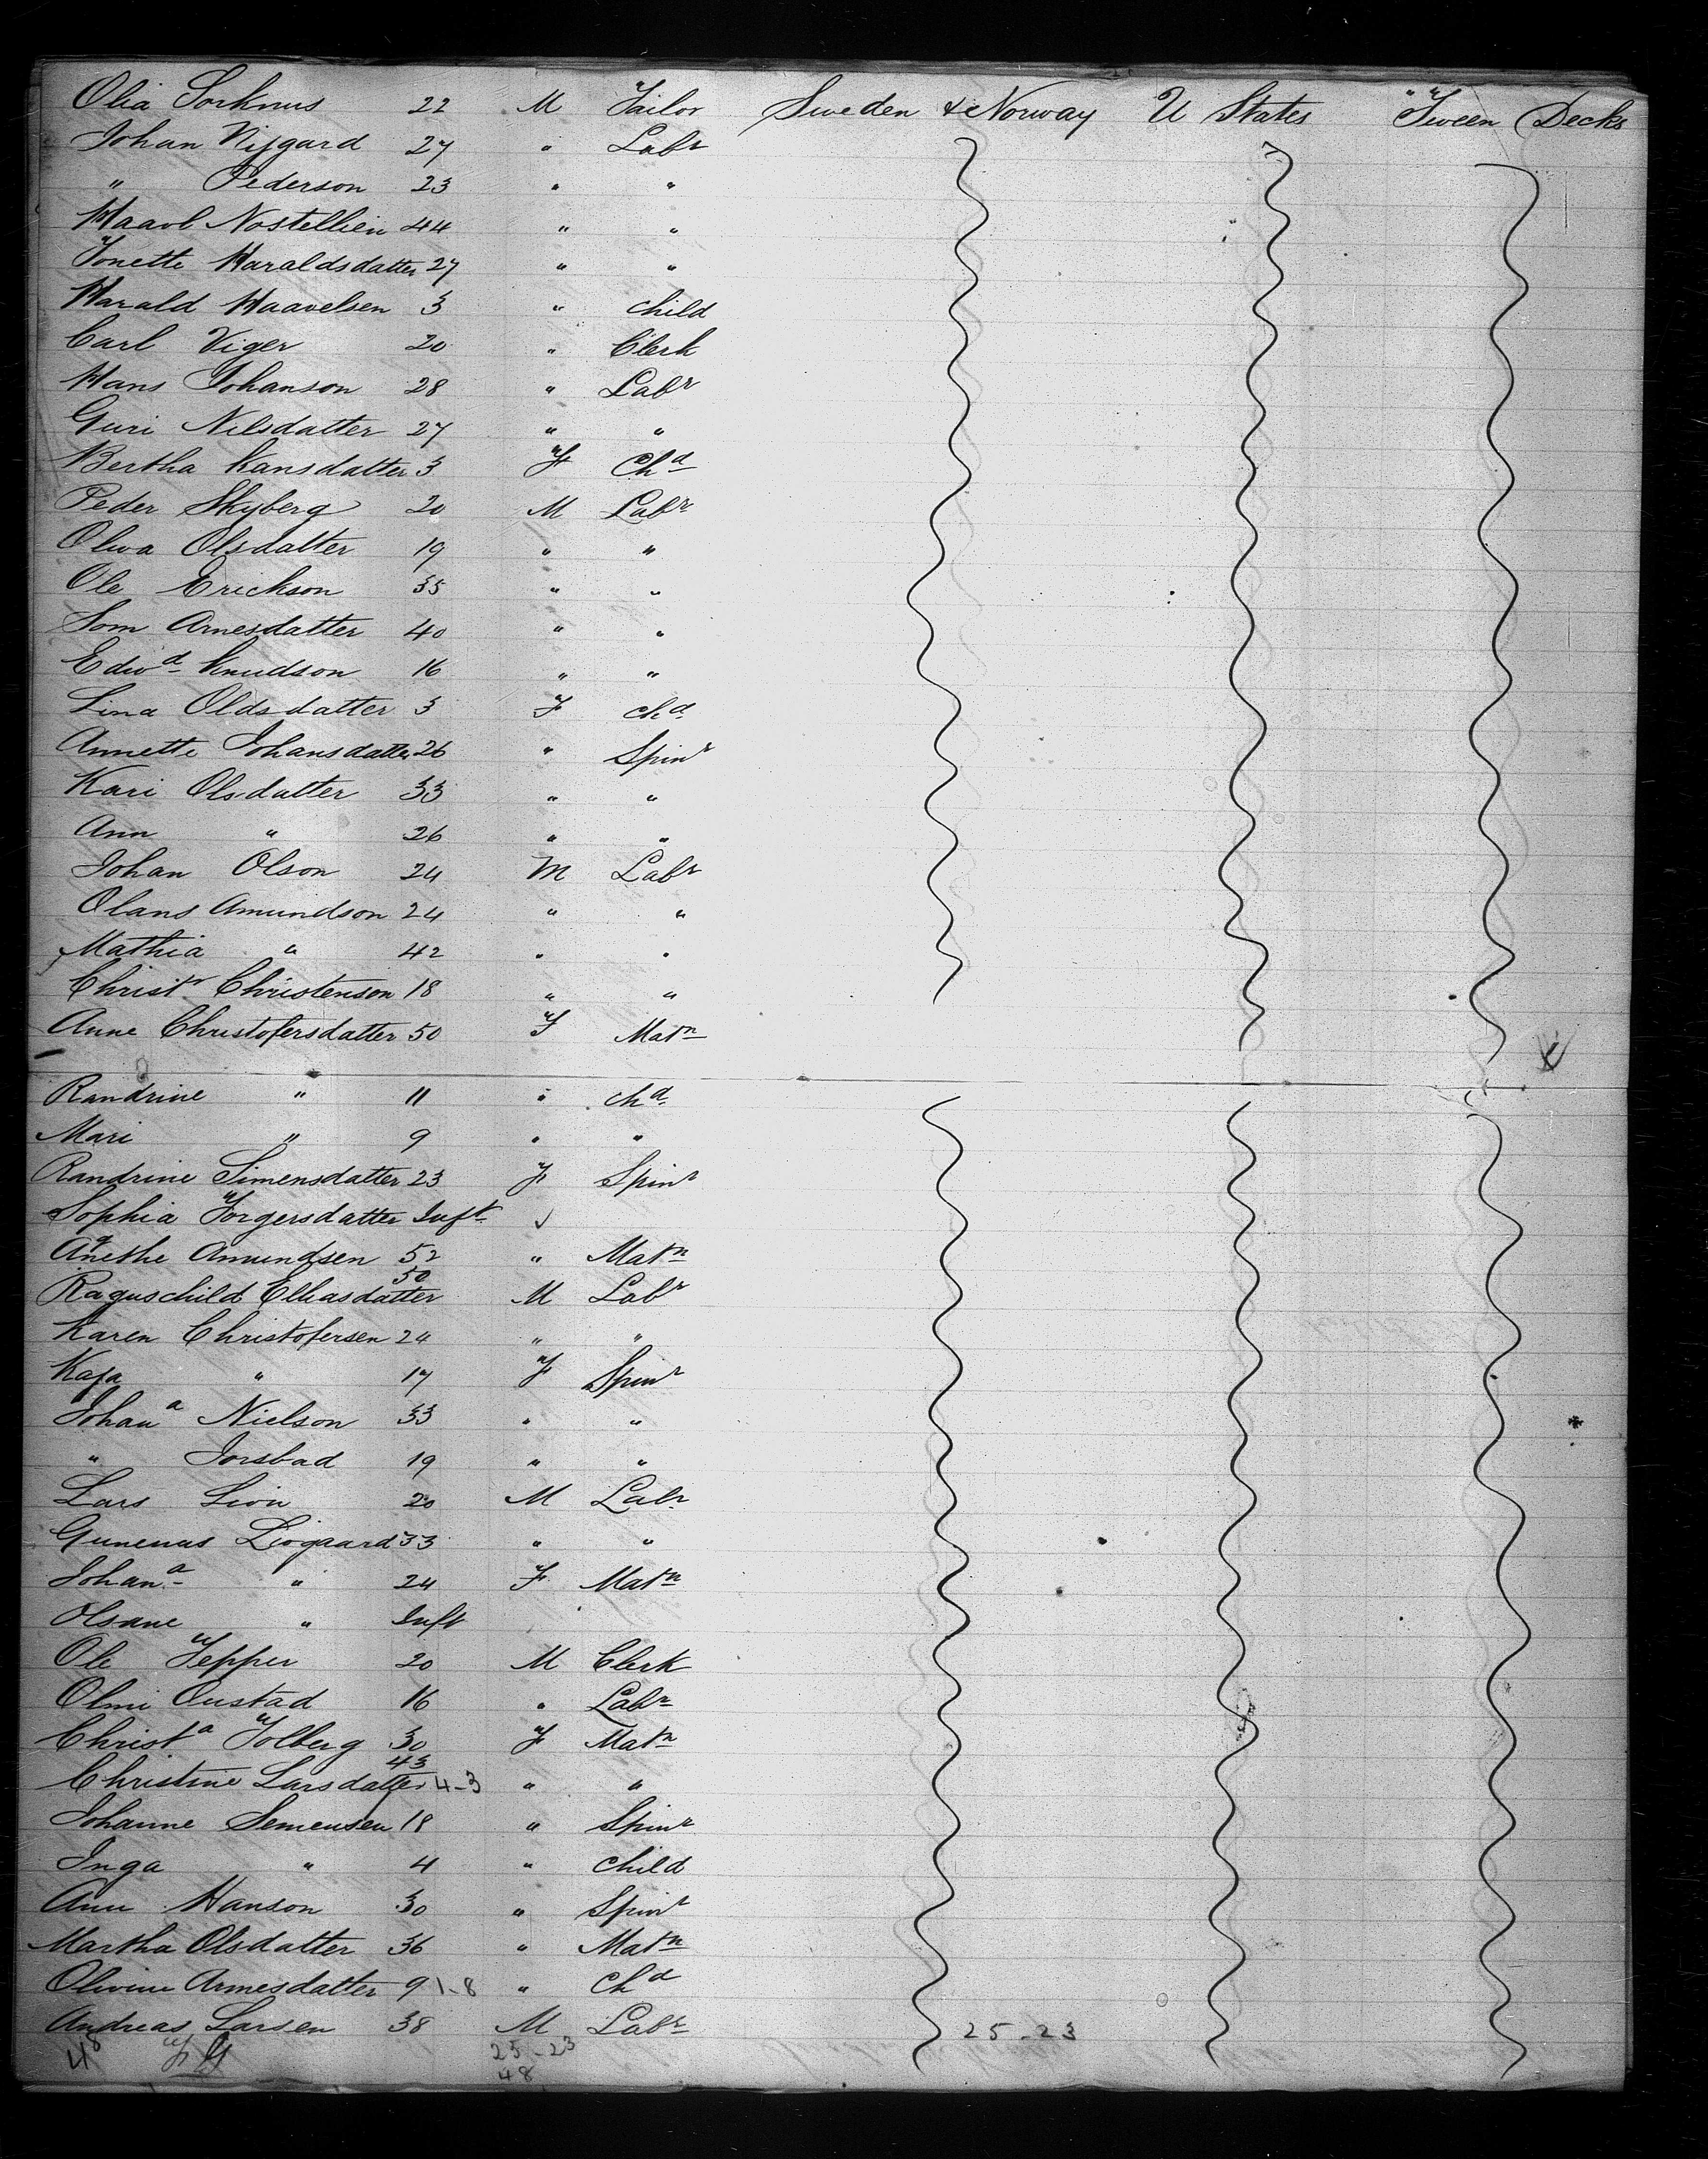 Olia Sorknus 22 M Tailor Sweden & Norway U States "Tween Decks
Johan Nijgard 27 " Labr
" Pederson 23 " "
Haavl Nostellien 44 " "
Tonette Haraldsdatter 27 " "
Harald Haavelsen 3 " Child
Carl Viger 20 " Clerk
Hans Johanson 28 " Labr
Guri Nilsdatter 27 " "
Bertha Hansdatter 3 F Chd
Peder Skyberg 20 M Labr
Oliva Olsdatter 19 " "
Ole Erickson 35 " "
Som Arnesdatter 40 " "
Edwd Knudson 16 " "
Lina Oldsdatter 3 F Chd
Annette Johansdatter 26 " Spinr
Kari Olsdatter 33 " "
Ann " 26 " "
Johan Olson 24 M Labr
Olans Amundson 24 " "
Mathia " 42 " "
Christr Christenson 18 " "
Anne Christofersdatter 50 F Matn
Randrine " 11 " Chd
Mari " 9 " "
Randrine Simensdatter 23 F Spinr
Sophia Torgersdatter Inft
Anethe Amundsen 52 " Matn
Raguschild Elliasdatter 50 M Labr
Karen Christofersen 24 " "
Kaja " 17 F Spinr
Johana Nielson 33 " "
" Jorsbad 19 " "
Lars Lion 20 M Labr
Gunenas Liogaard 33 " "
Johana " 24 F Matn
Olsane " Inft
Ole Tepper 20 M Clerk
Olmi Oustad 16 " Labr
Christa Tolberg 30 F Matn
Christine Larsdatter 43 4-3 " "
Johanne Semensen 18 " Spinr
Inga " 4 " Child
Ann Hanson 30 " Spinr
Martha Olsdatter 36 " Matn
Olivine Armesdatter 9 1-8 " Chd
Andreas Larsen 38 M Labr 25-23
48 25-23
48